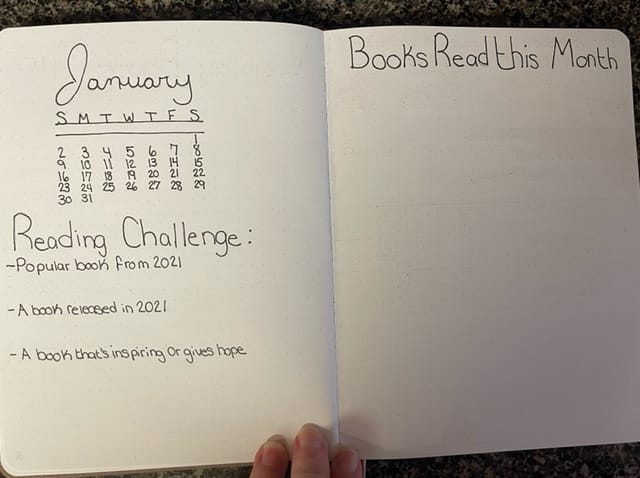 January
S M T W T F S
1
2 3 4 5 6 7 8
9 10 11 12 13 14 15
16 17 18 19 20 21 22
23 24 25 26 27 28 29
30 31
Reading Challenge:
-Popular book from 2021
-A book released in 2021
-A book that's inspiring or gives hope
10
Books Read this Month